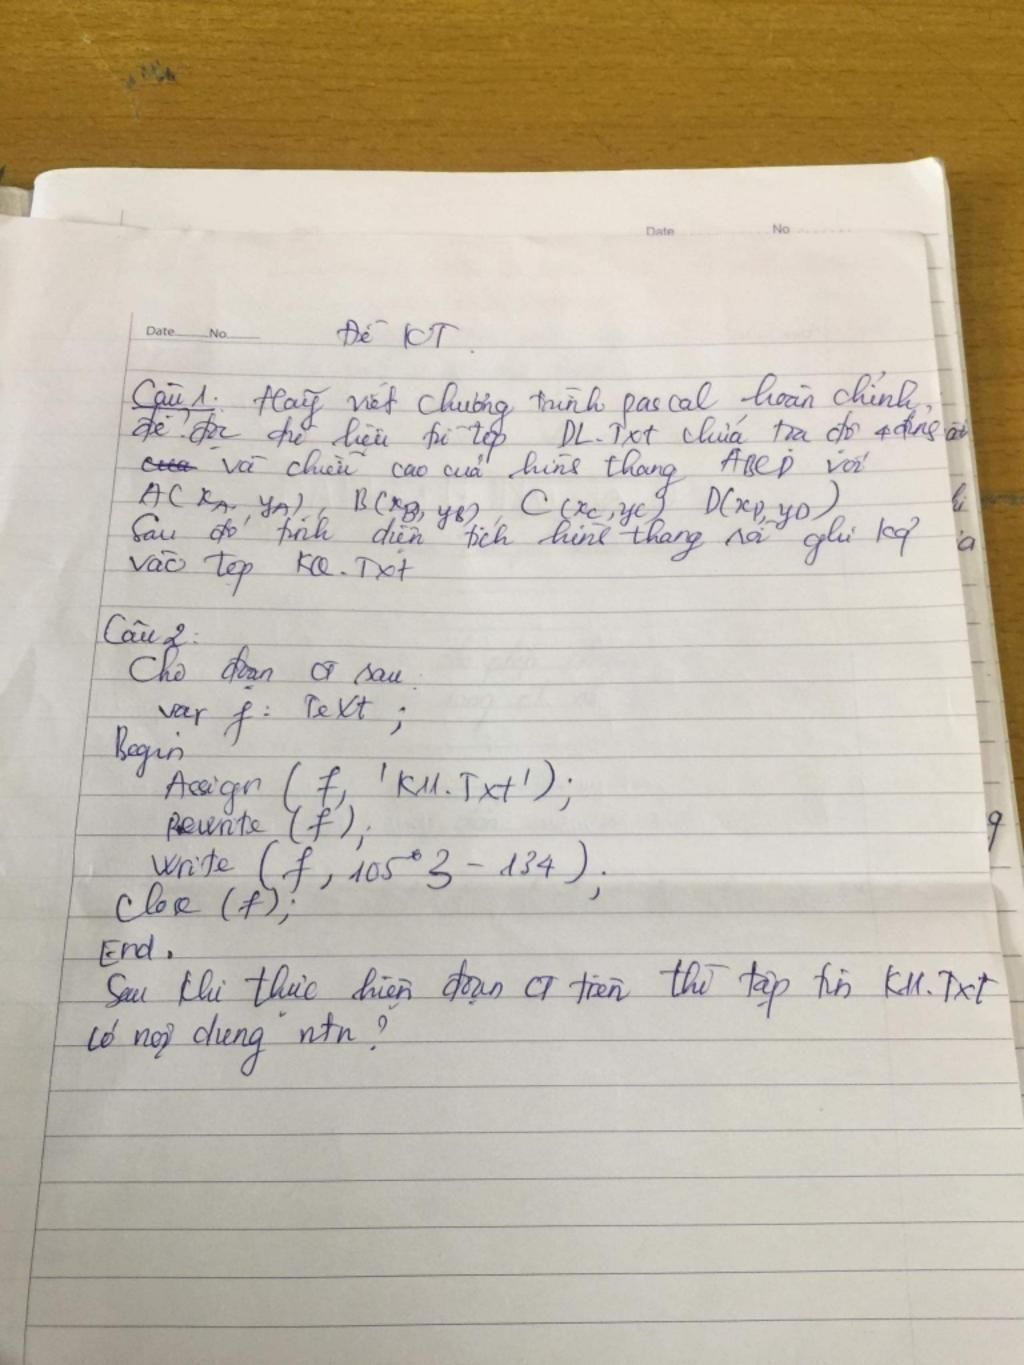 Date No
Date No
Đề KT.
Câu 1: Hãy viết chương trình pascal hoàn chỉnh,
để đọc dữ liệu từ tệp DL.Txt chứa tọa độ 4 đỉnh
và chiều cao của hình thang ABCD với
A(xA, yA), B(xB, yB), C(xC, yC) D(xD, yD)
Sau đó tính diện tích hình thang rồi ghi kq
vào tệp KQ.Txt
Câu 2:
Cho đoạn CT sau:
var f: TeXt;
Begin
Assign (f, 'KM.Txt');
Rewrite (f);
Write (f, 105*3-134);
Close (f);
End.
Sau khi thực hiện đoạn CT trên thì tập tin KM.Txt
có nội dung ntn?